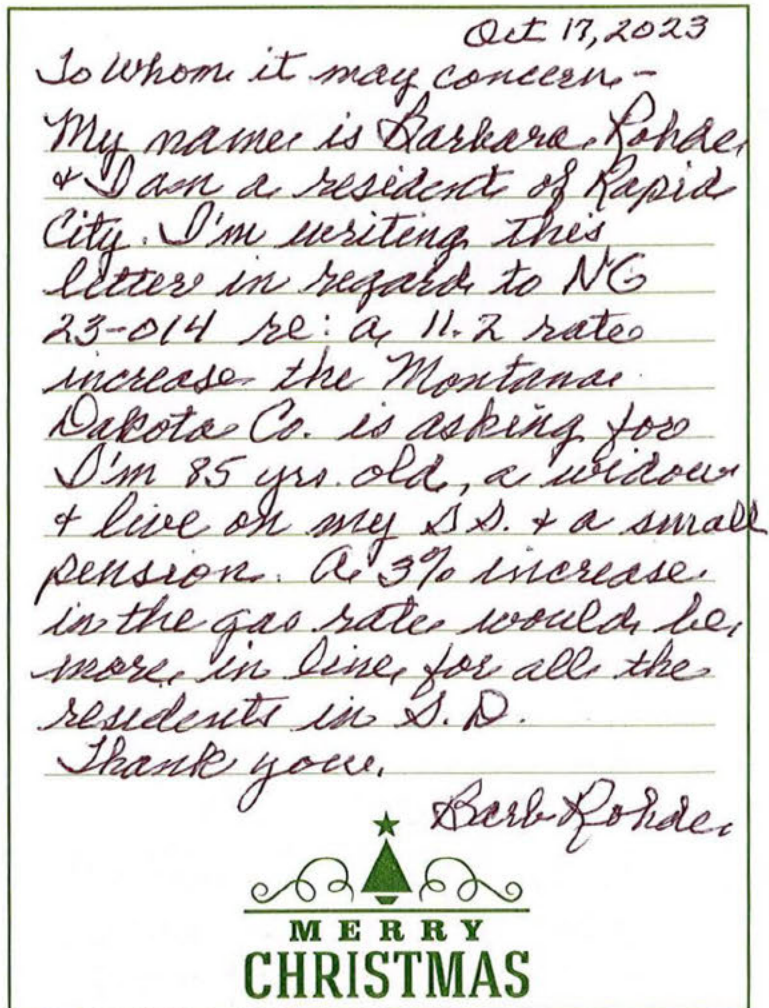 Oct 17, 2023
To Whom it may concern -
My name is Barbara Rohde
& I am a resident of Rapid
City. I'm writing this
letter in regard to NG
23-014 re: a 11.2 rate
increase the Montana
Dakota Co. is asking for
I'm 85 yrs. old, a widow
& live on my S.S. & a small
pension. A 3% increase
in the gas rate would be
more in line for all the
residents in S.D.
Thank you.
Barb Rohde
MERRY
CHRISTMAS